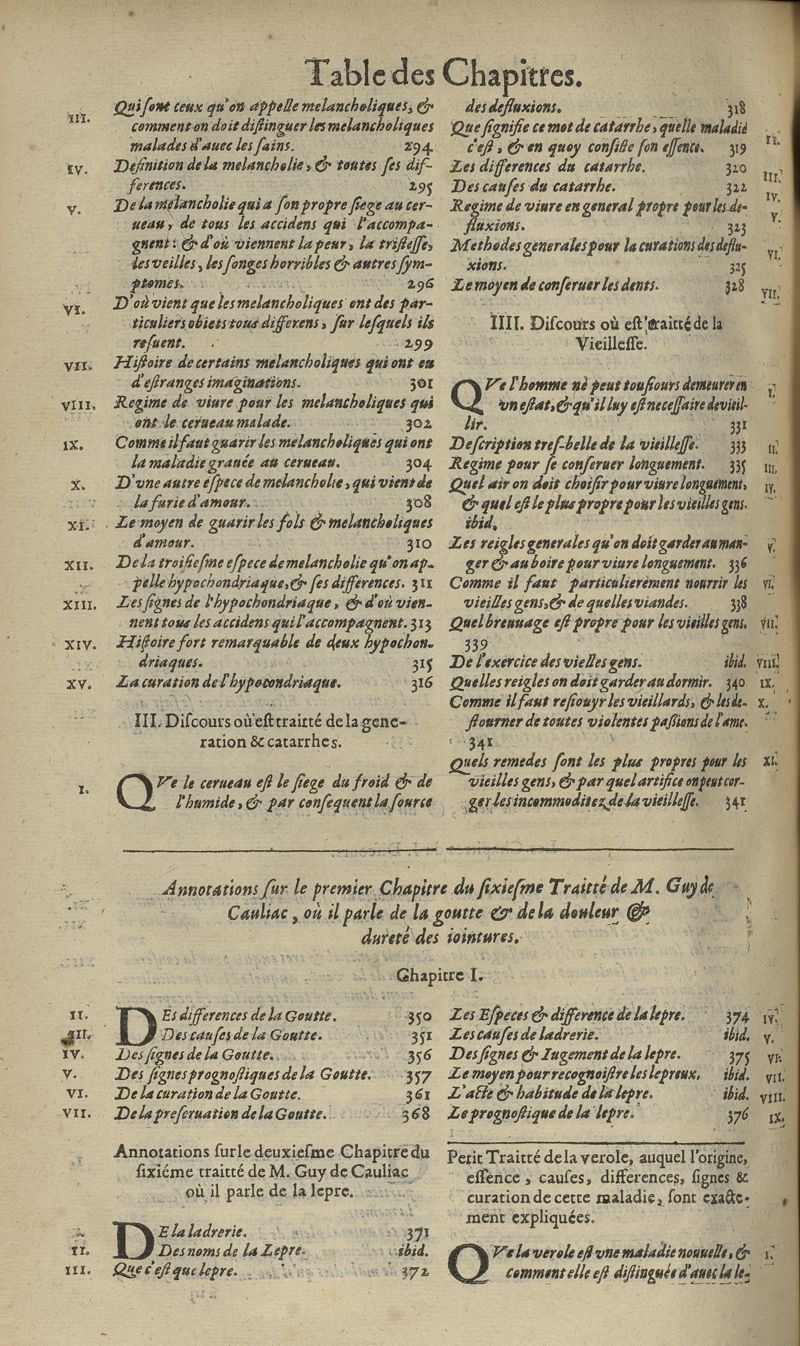 Table des Chapitres.
III. Qui ſont ceux qu'on appelle melancholiques, &
comment on doit diſtinguer les melancholiques
malades d'auec les ſains. 294
IV. Definition de la melancholie, & toutes ſes dif-
ferences. 295
V. De la melancholie qui a ſon propre ſiege au cer-
ueau, de tous les accidens qui l'accompa-
gnent: & d'où viennent la peur, la triſteſſe,
les veilles, les ſonges horribles & autres ſym-
ptomes. 296
VI. D'où vient que les melancholiques ont des par-
ticuliers obiets tous differens, ſur leſquels ils
reſuent. 299
VII. Hiſtoire de certains melancholiques qui ont eu
d'eſtranges imaginations. 301
VIII. Regime de viure pour les melancholiques qui
ont le cerueau malade. 302
IX. Comme il faut guarir les melancholiques qui ont
la maladie grauée au cerueau. 304
X. D'vne autre eſpece de melancholie, qui vient de
la furie d'amour. 308
XI. Le moyen de guarir les fols & melancholiques
d'amour. 310
XII. De la troiſieſme eſpece de melancholie qu'on ap-
pelle hypochondriaque, & ſes differences. 311
XIII. Les ſignes de l'hypochondriaque, & d'où vien-
nent tous les accidens qui l'accompagnent. 313
XIV. Hiſtoire fort remarquable de deux hypochon-
driaques. 315
XV. La curation de l'hypocondriaque. 316
III. Diſcours où eſt traitté de la gene-
ration & catarrhes.
I. QVe le cerueau eſt le ſiege du froid & de
l'humide, & par conſequent la ſource
des defluxions. 318
Que ſignifie ce mot de catarrhe, quelle maladie II.
c'eſt, & en quoy conſiſte ſon eſſence. 319
Les differences du catarrhe. 320 III.
Des cauſes du catarrhe. 322 IV.
Regime de viure en general propre pour les de- V.
fluxions. 323
Methodes generales pour la curations des deflu- VI.
xions. 325
Le moyen de conſeruer les dents. 328 VII.
IIII. Diſcours où eſt traitté de la
Vieilleſſe.
QVe l'homme ne peut touſiours demeurer en I.
vn eſtat, & qu'il luy eſt neceſſaire de vieil-
lir. 331
Deſcription treſ-belle de la vieilleſſe. 333 II.
Regime pour ſe conſeruer longuement. 335 III.
Quel air on doit choiſir pour viure longuement, IV.
& quel eſt le plus propre pour les vieilles gens.
ibid.
Les reigles generales qu'on doit garder au man- V.
ger & au boire pour viure longuement. 336
Comme il faut particulierement nourrir les VI.
vieilles gens, & de quelles viandes. 338
Quel breuuage eſt propre pour les vieilles gens. VII.
339
De l'exercice des vielles gens. ibid. VIII.
Quelles reigles on doit garder au dormir. 340 IX.
Comme il faut reſiouyr les vieillards, & les de- X.
ſtourner de toutes violentes paſsions de l'ame.
341
Quels remedes ſont les plus propres pour les XI.
vieilles gens, & par quel artifice on peut cor-
ger les incommoditez de la vieilleſſe. 341
Annotations ſur le premier Chapitre du ſixieſme Traitté de M. Guy de
Cauliac, où il parle de la goutte & de la douleur &
dureté des iointures.
Chapitre I.
II. DEs differences de la Goutte. 350
III. Des cauſes de la Goutte. 351
IV. Des ſignes de la Goutte. 356
V. Des ſignes prognoſtiques de la Goutte. 357
VI. De la curation de la Goutte. 361
VII. De la preſeruation de la Goutte. 368
Annotations ſur le deuxieſme Chapitre du
ſixiéme traitté de M. Guy de Cauliac
où il parle de la lepre.
DE la ladrerie. 371
II. Des noms de la Lepre. ibid.
III. Que c'eſt que lepre. 372
Les Eſpeces & difference de la lepre. 374 IV.
Les cauſes de ladrerie. ibid. V.
Des ſignes & Iugement de la lepre. 375 VI.
Le moyen pour recognoiſtre les lepreux. ibid. VII.
L'acte & habitude de la lepre. ibid. VIII.
Le prognoſtique de la lepre. 376 IX.
Petit Traitté de la verole, auquel l'origine,
eſſence, cauſes, differences, ſignes &
curation de cette maladie, ſont exacte-
ment expliquées.
QVe la verole eſt vne maladie nouuelle, & I.
comment elle eſt diſtinguée d'auec la le-